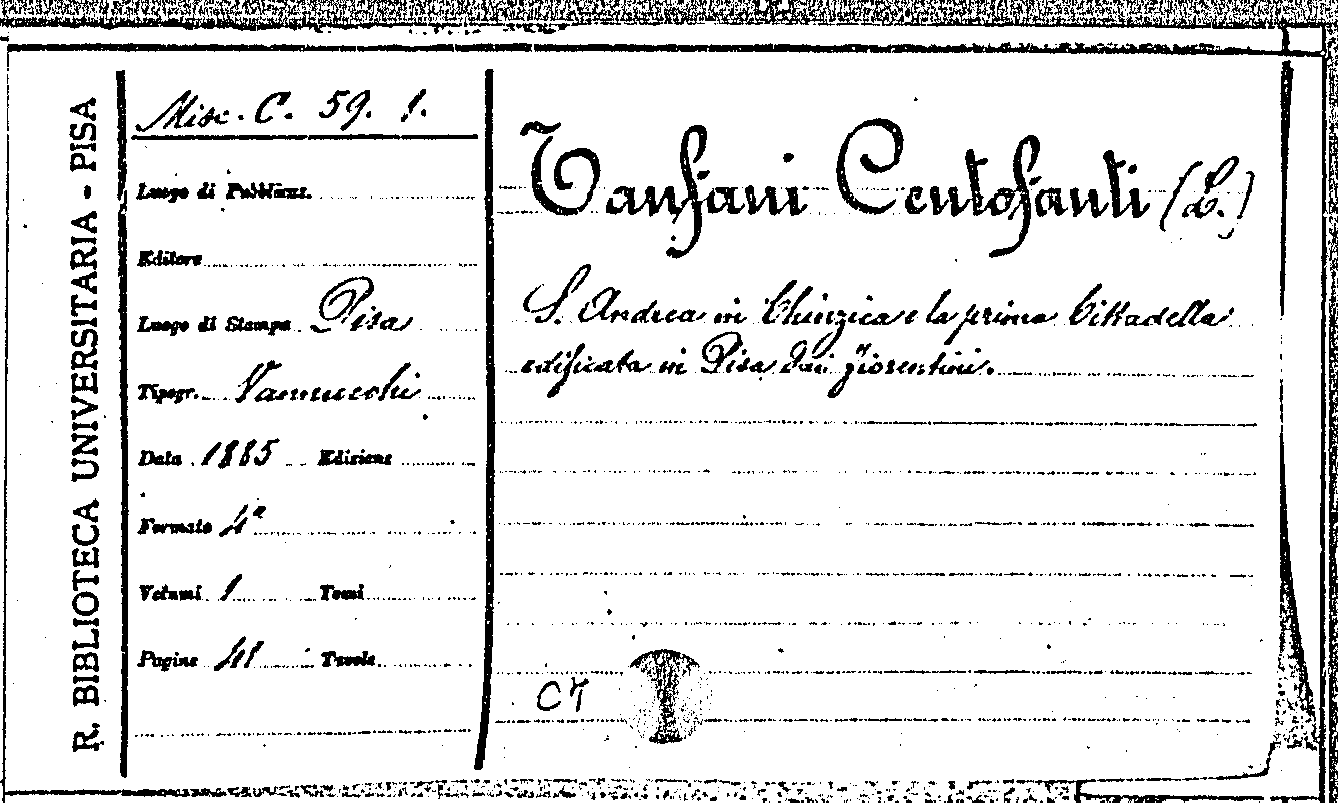 R. BIBLIOTECA UNIVERSITARIA - PISA
Misc. C. 59. 1.
Luogo di Pubblicaz.
Editore
Luogo di Stampa Pisa
Tipogr. Vannucchi
Data 1885 Edizione
Formato 4°
Volumi 1 Tomi
Pagine 41 Tavole
Tanfani Centofanti (L.)
S. Andrea in Chinzica e la prima Cittadella
edificata in Pisa dai fiorentini.
CT